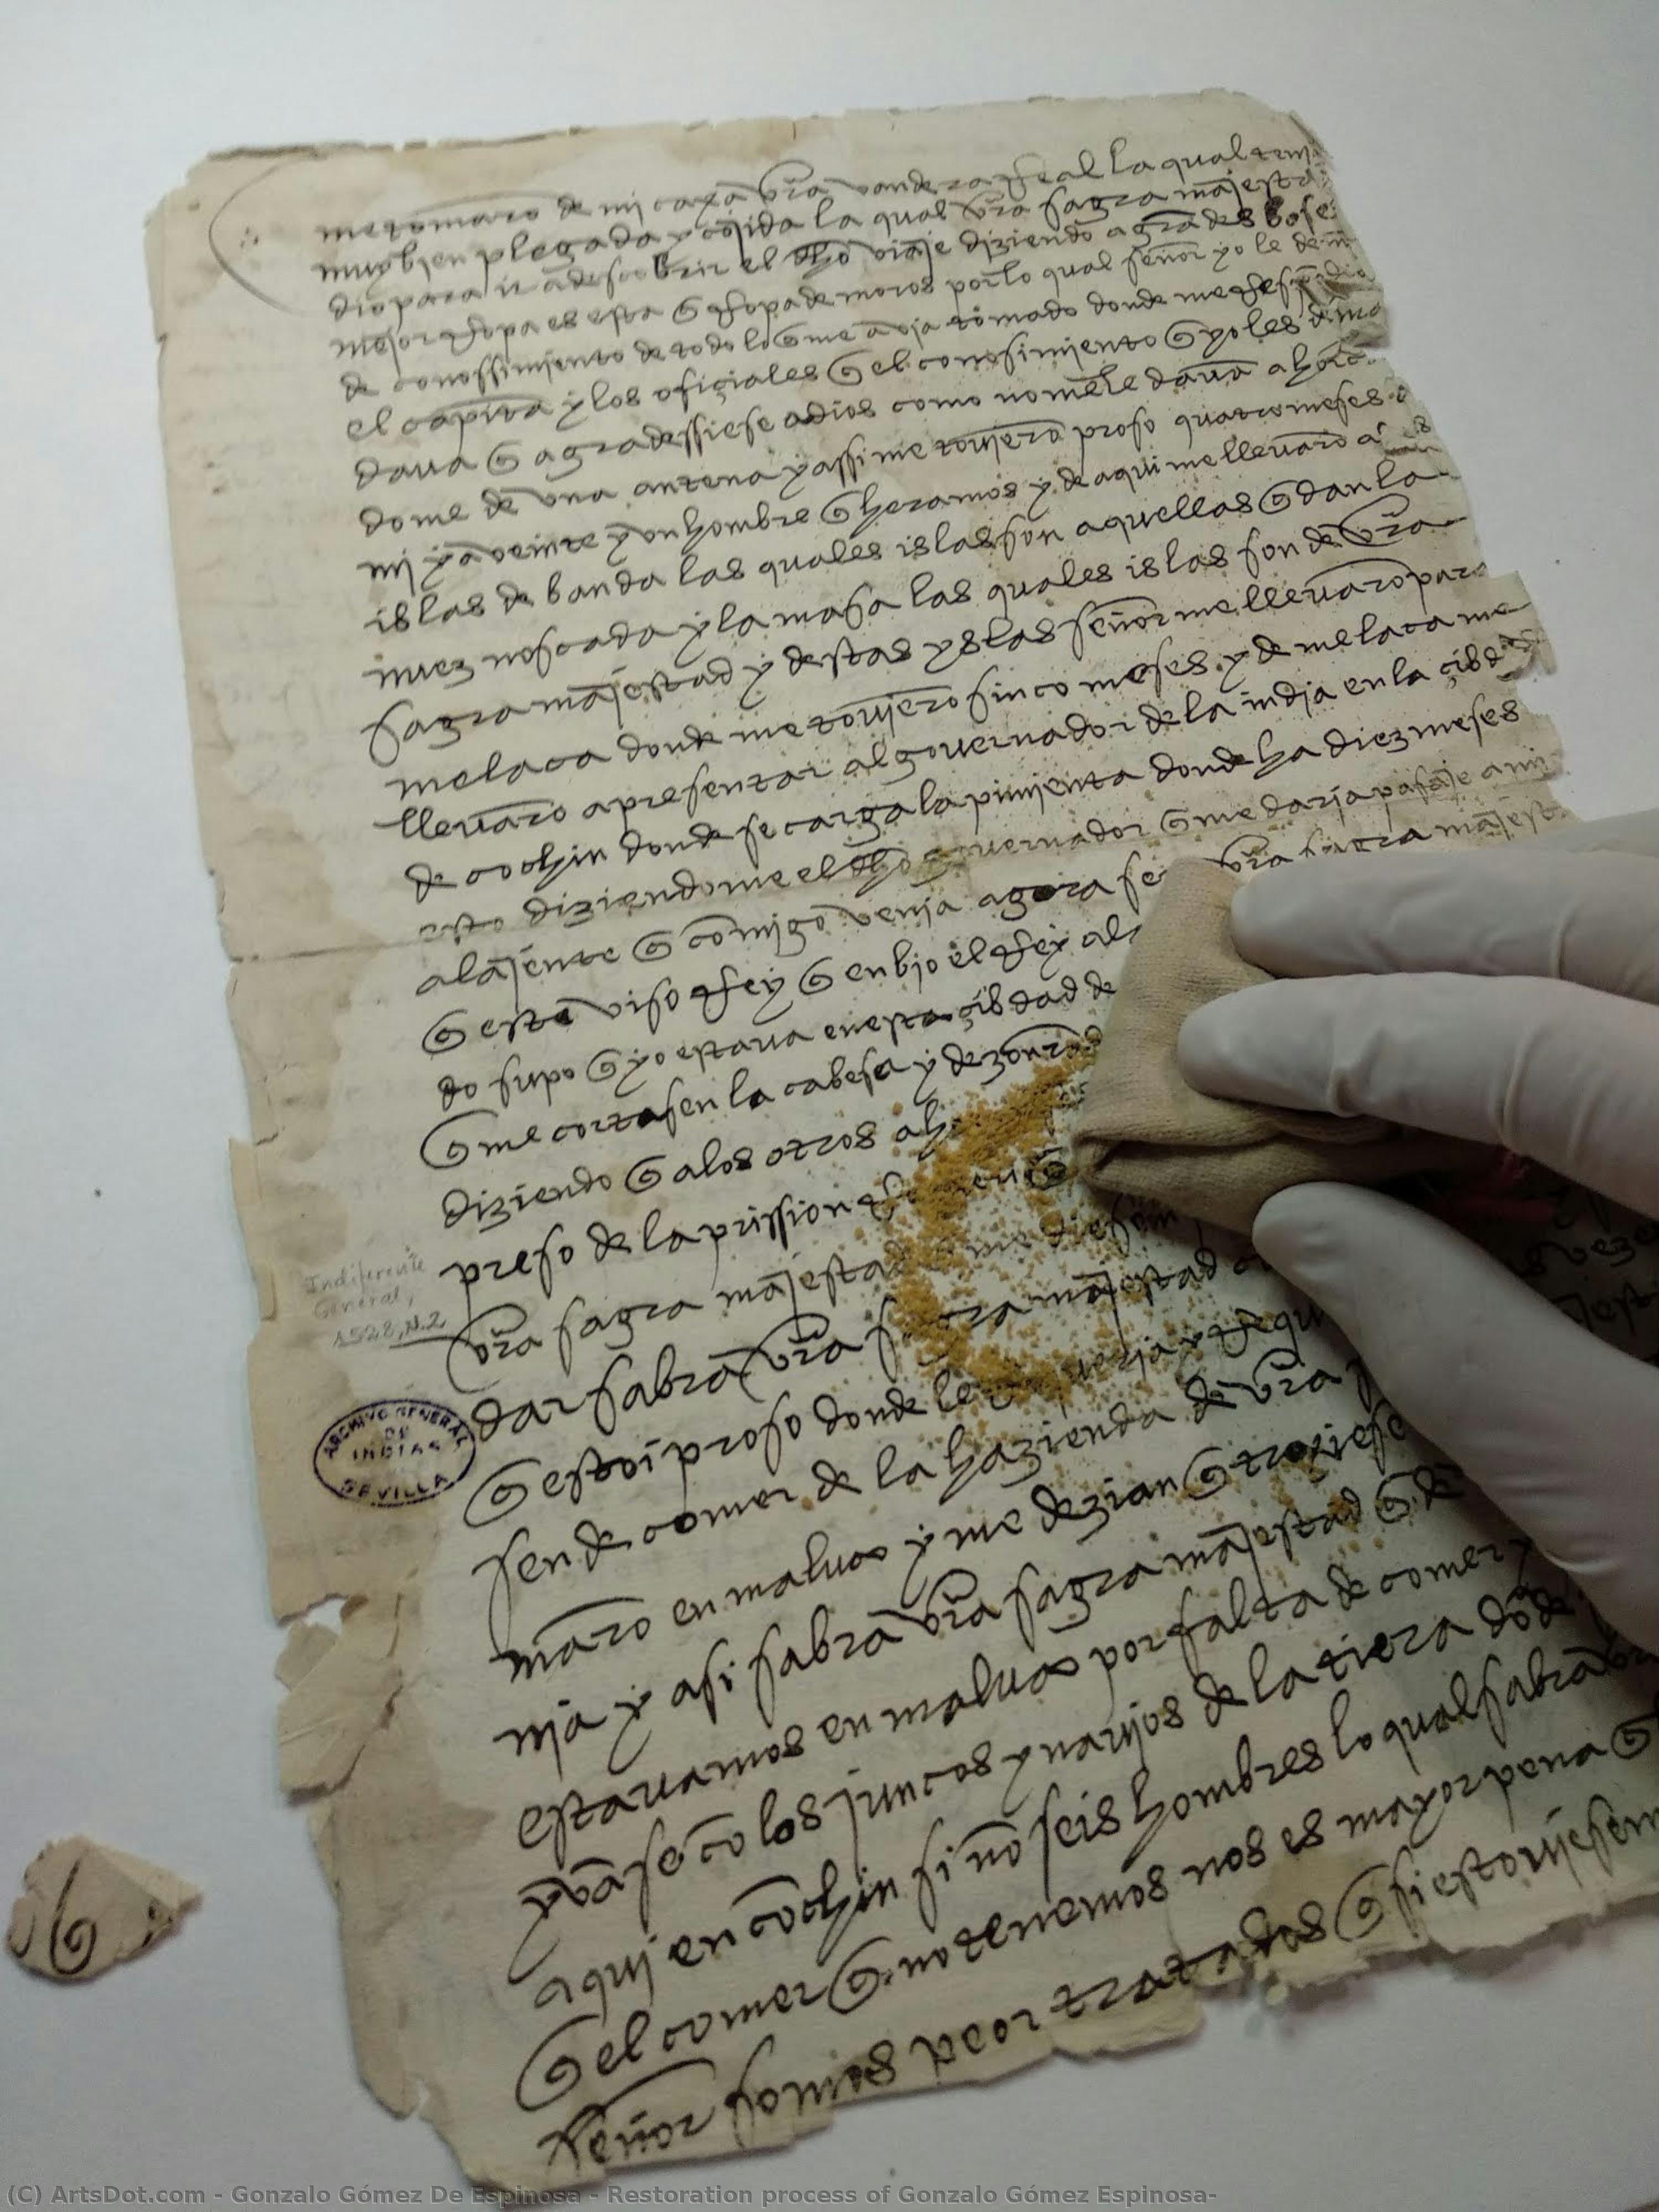 me tomaro de mi caxa vra vandera Real la qual tenja
muy bien plegada y cojida la qual vra sagra majesta
dio para ir a descobrir el dho viaje diziendo a grādes bose
mejor Ropa es esta q Ropa de moros por lo qual señor yo le
de conossimjento de todo lo q me avja tomado donde me Respōdio
el capitā y los ofiçiales q el conosimjento q yo les demā
dava q agradessiese a dios como no mele davā ahorca
do me de vna antena y assi me tovjerō preso quatro meses
mj y a veinte y vn hombre q heramos y de aquj me llevarō a
islas de banda las quales islas son aquellas q dan la
nuez noscada y la masa las quales islas son de vra
sagra majestad y destas yslas señor me llevarō para
melaca donde me tovjerō sinco meses y de melaca me
llevarō a presentar al governador de la indja en la çibdad
de cochin donde se carga la pimjenta donde ha diez meses
esto diziendome el dho governador q me darja pasaje a mj
a la jente q cōmigo venja agora vra sacra majest
q este viso Rey q enbjo el Rey
do supo q yo estava en esta çibdad de
q me cortasen la cabesa y dezonrrā
diziendo q a los otros
preso de la prission
vra sagra majestad q me diesen
dar sabrā vra sacra majestad
q estoi preso donde le Requ
sen de comer de la hazienda de vra
marō en maluco y me dezian q troxjese
nja y asi sabrā vra sagra majestad q de
estavamos en maluco por falta de comer y
yvāse cō los juncos y navjos de la tiera dōde
aquj en cochin si nō seis hombres lo qual sabrā
q el comer q no tenemos nos es mayor pena q
señor somos peor tratados q si estovjesem
Indiferente
General,
1528, N.2
ARCHIVO GENERAL
DE
INDIAS
SEVILLA
(C) ArtsDot.com - Gonzalo Gómez De Espinosa - Restoration process of Gonzalo Gómez Espinosa-